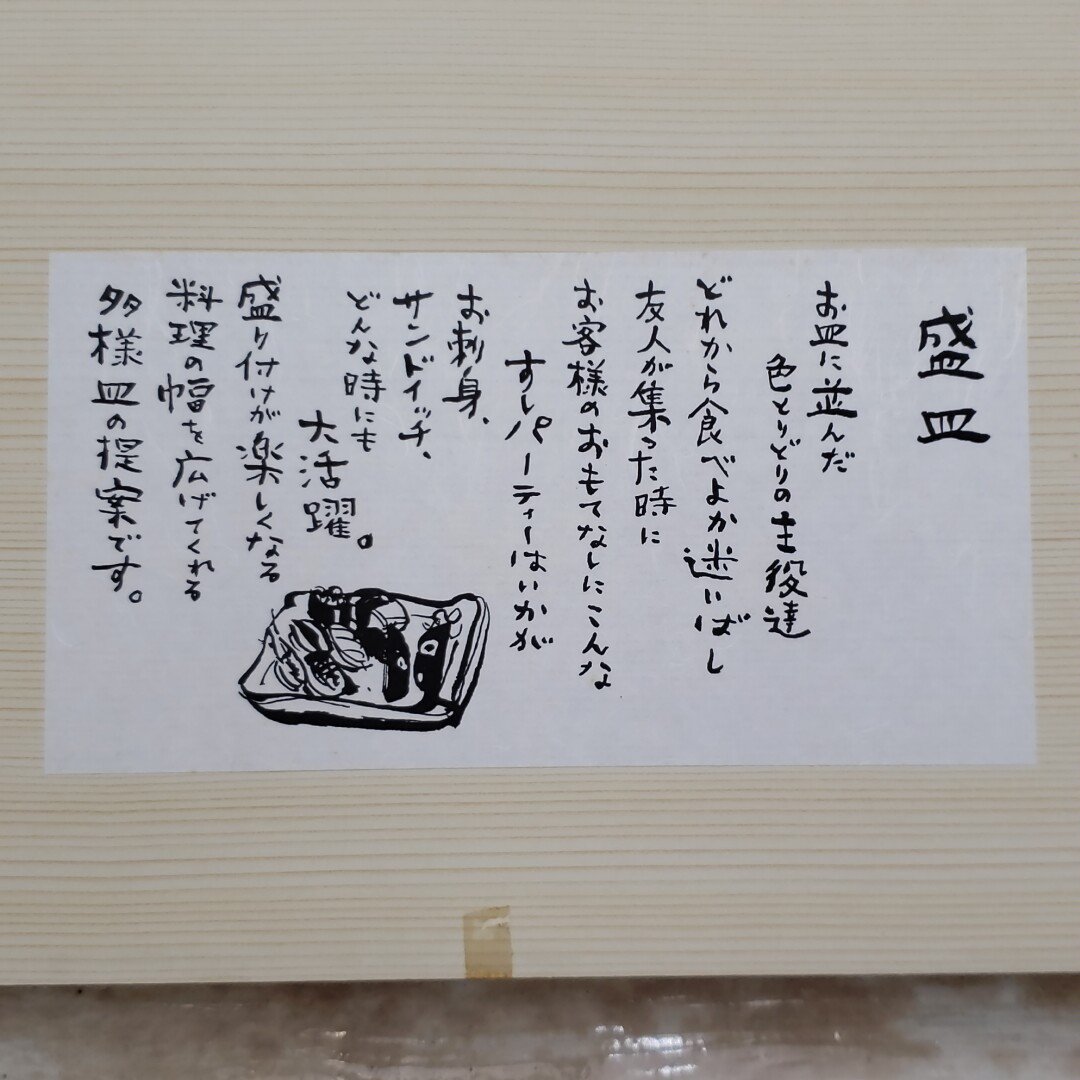 盛皿
お皿に並んだ
色とりどりの主役達
どれから食べよか迷いばし
友人が集った時に
お客様のおもてなしにこんな
すしパーティーはいかが
お刺身、
サンドイッチ、
どんな時にも
大活躍。
盛り付けが楽しくなる
料理の幅を広げてくれる
多様皿の提案です。